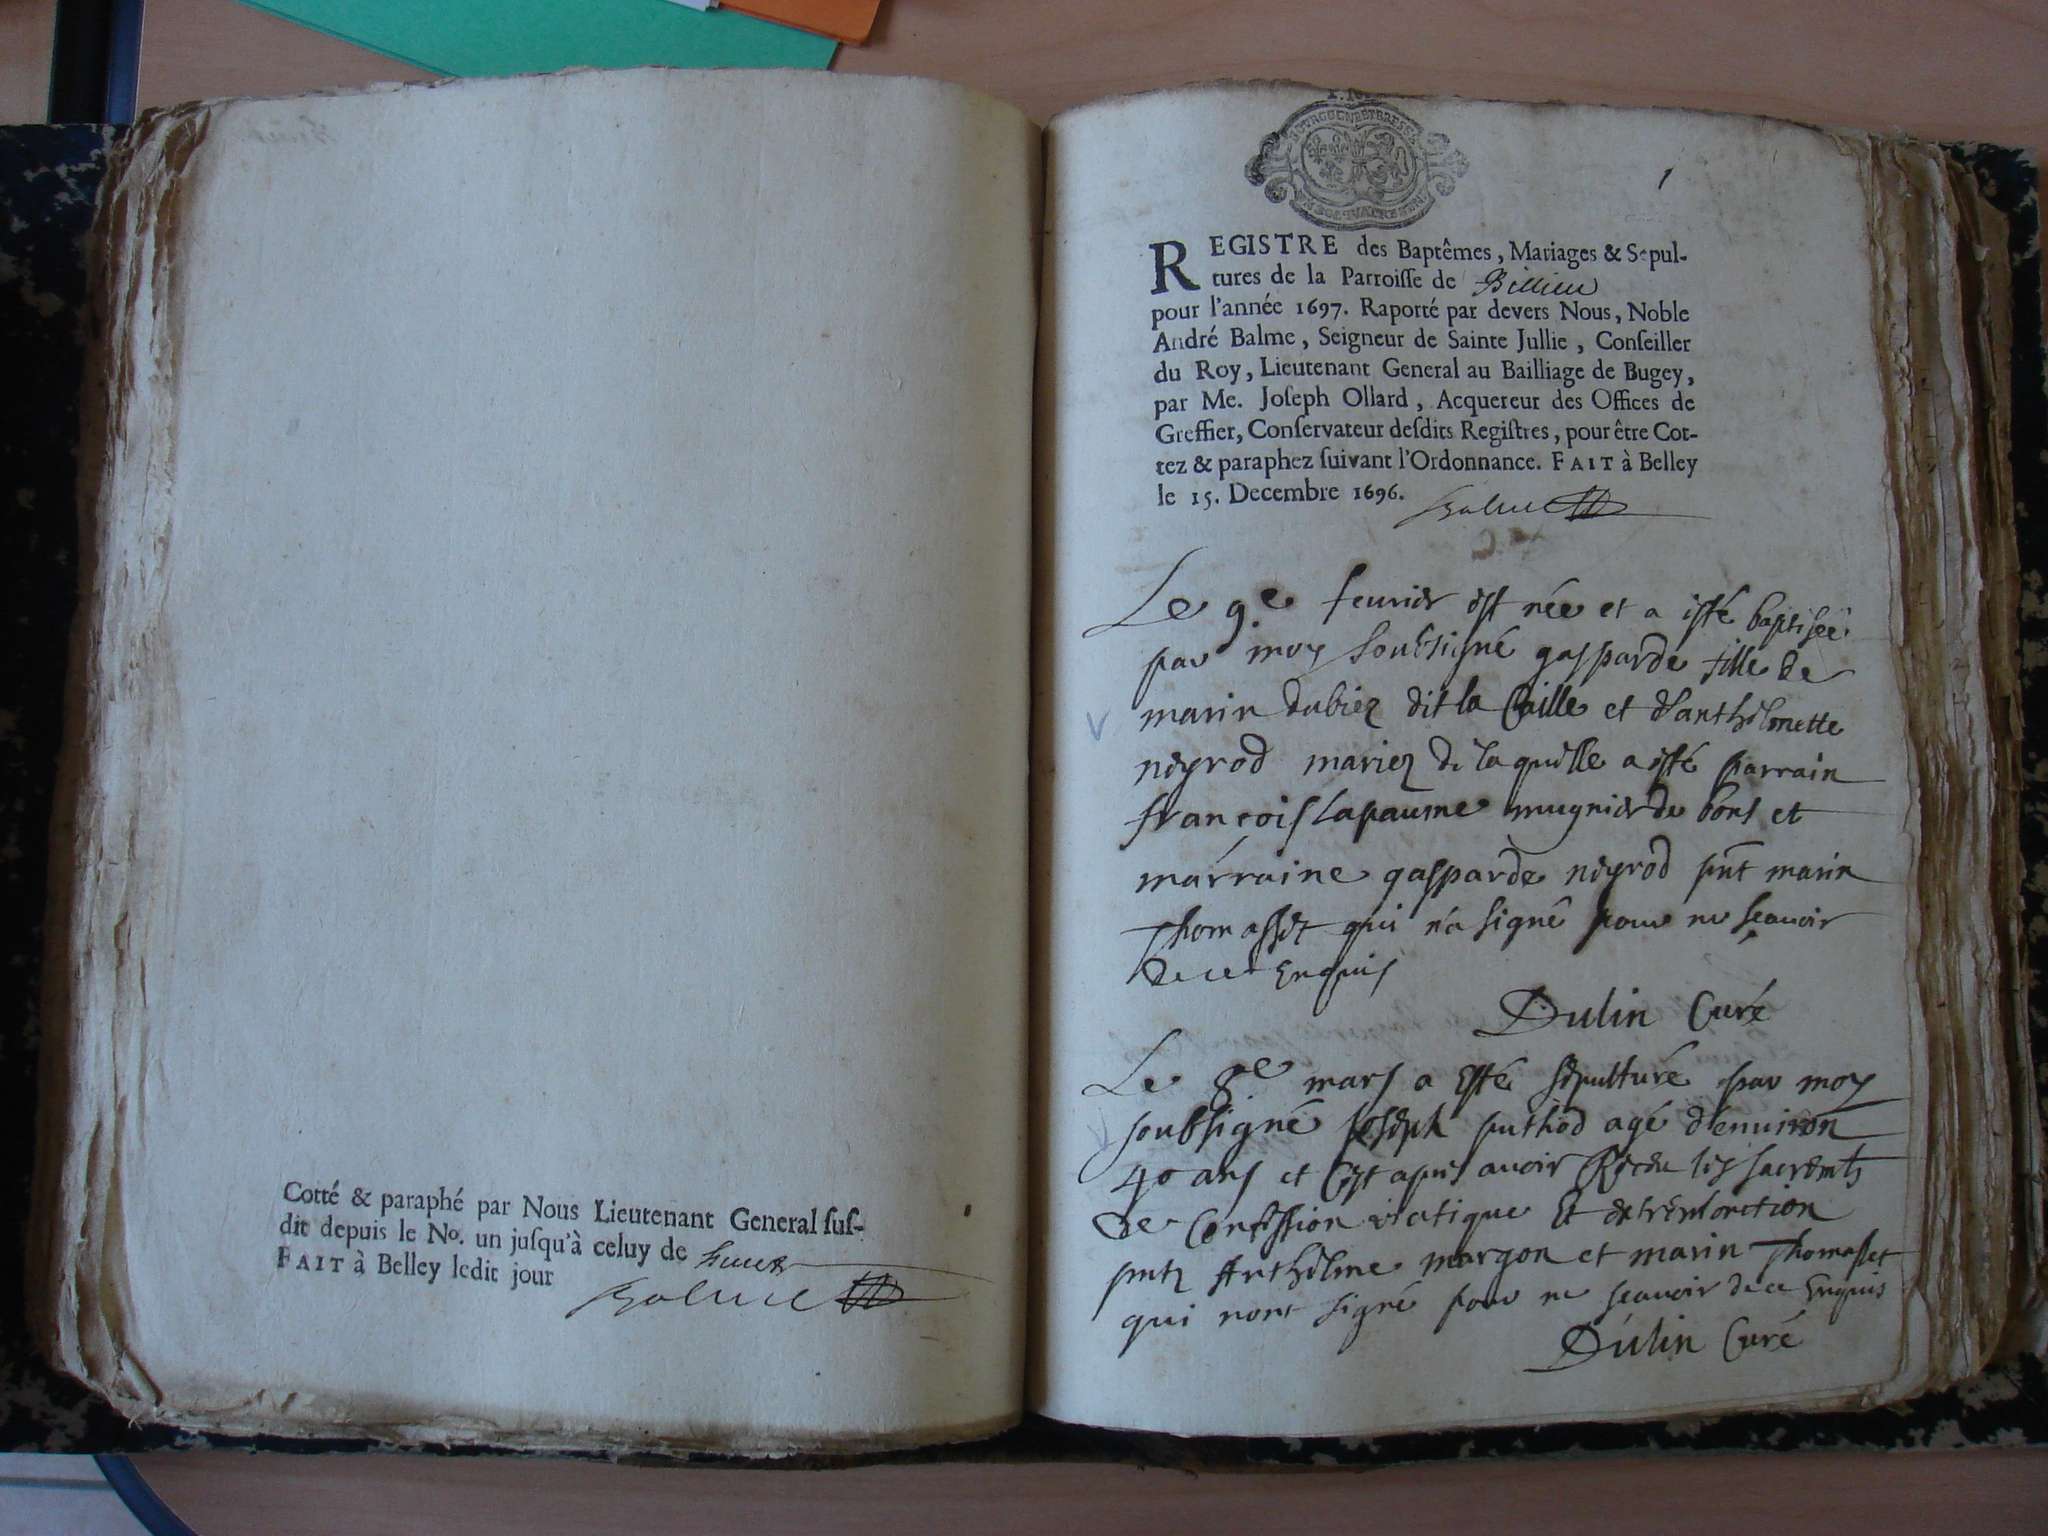 Cotté & paraphé par Nous Lieutenant General ſuſ-
dit depuis le No. un juſqu'à celuy de huict
FAIT à Belley ledit jour
Balme
1
REGISTRE des Baptêmes, Mariages & Sepul-
tures de la Parroiſſe de Billieu
pour l'année 1697. Raporté par devers Nous, Noble
André Balme, Seigneur de Sainte Jullie, Conſeiller
du Roy, Lieutenant General au Bailliage de Bugey,
par Me. Joſeph Ollard, Acquereur des Offices de
Greffier, Conſervateur deſdits Regiſtres, pour être Cot-
tez & paraphez ſuivant l'Ordonnance. FAIT à Belley
le 15. Decembre 1696.
Balme
Le 9e feurier est née et a esté baptisée
par moy soubsigné gasparde fille de
marin dubiez dit la Caille et d'anthelmette
neyrod mariez de laquelle a esté parrain
françois lapaume mugnier de bons et
marraine gasparde neyrod pnt marin
Thomasset qui n'a signé pour ne sçauoir
de ce Enquis
Dulin Curé
Le 8e mars a Esté sepulturé par moy
soubsigné Joseph puthod agé d'enuiron
40 ans et C'est apres auoir Receu les sacremts
de Confession viatique Et de l'extreme onction
pntz Anthelme margon et marin Thomasset
qui n'ont signé pour ne sçauoir de ce Enquis
Dulin Curé